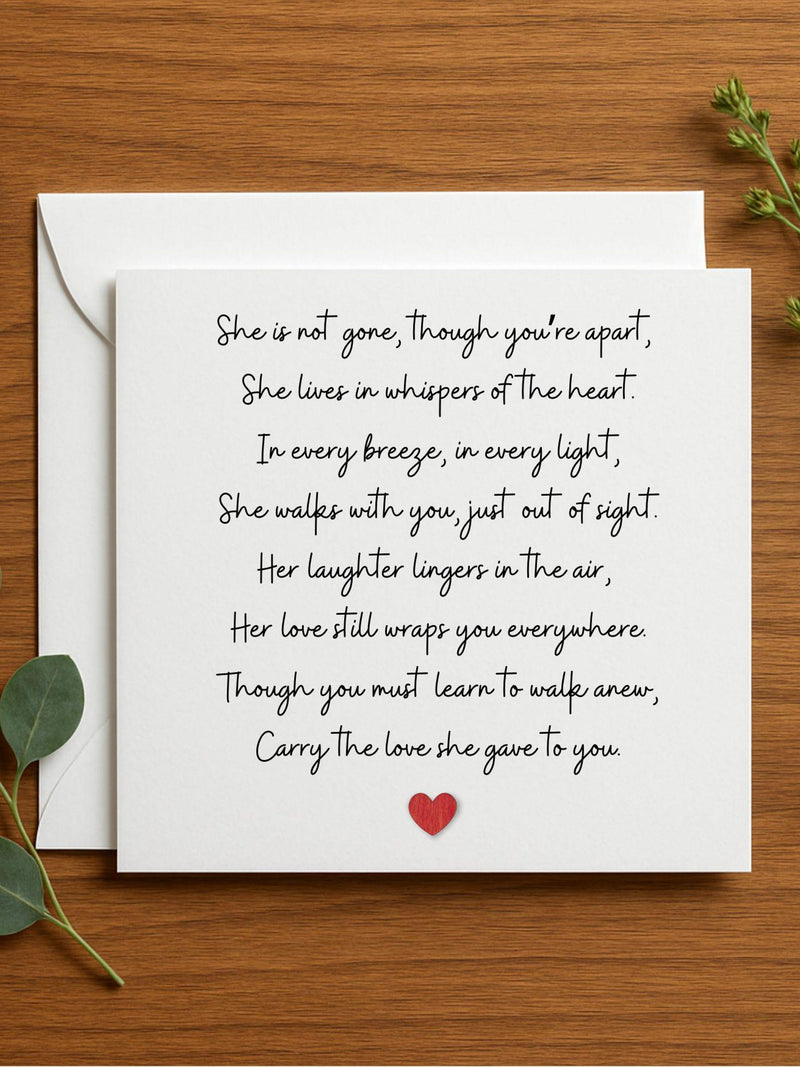 She is not gone, though you're apart,
She lives in whispers of the heart.
In every breeze, in every light,
She walks with you, just out of sight.
Her laughter lingers in the air,
Her love still wraps you everywhere.
Though you must learn to walk anew,
Carry the love she gave to you.